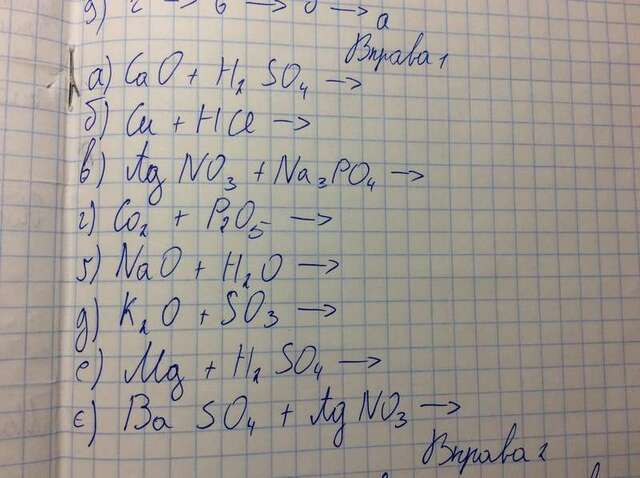 д) г → в → б → а
Вправа 1
а) CaO + H₂SO₄ →
б) Cu + HCl →
в) AgNO₃ + Na₃PO₄ →
г) Co₂ + P₂O₅ →
5) NaO + H₂O →
д) K₂O + SO₃ →
е) Mg + H₂SO₄ →
є) BaSO₄ + AgNO₃ →
Вправа 2